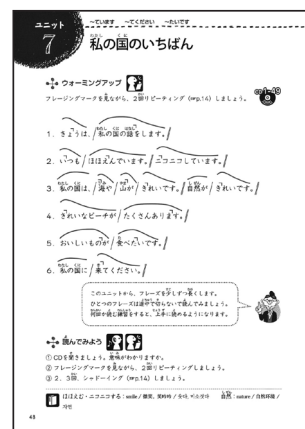 ユニット 7
～ています ～てください ～たいです
私の国のいちばん
ウォーミングアップ
cd1-49
フレージングマークを見ながら、2回リピーティング（⇒p.14）しましょう。
1．きょうは、/私の国の話をします。//
2．いつも/ほほえんでいます。/ニコニコしています。//
3．私の国は、/海や/山が/きれいです。/自然が/きれいです。//
4．きれいなビーチが/たくさんあります。//
5．おいしいものが/食べたいです。//
6．私の国に/来てください。//
このユニットから、フレーズを少しずつ長くします。
ひとつのフレーズは途中で切らないで読んでみましょう。
何回か読む練習をすると、上手に読めるようになります。
読んでみよう
① CDを聞きましょう。意味がわかりますか。
② フレージングマークを見ながら、2回リピーティングしましょう。
③ 2、3回、シャドーイング（⇒p.14）しましょう。
ほほえむ・ニコニコする：smile /
自然：nature / 自然环境 /
자연
48